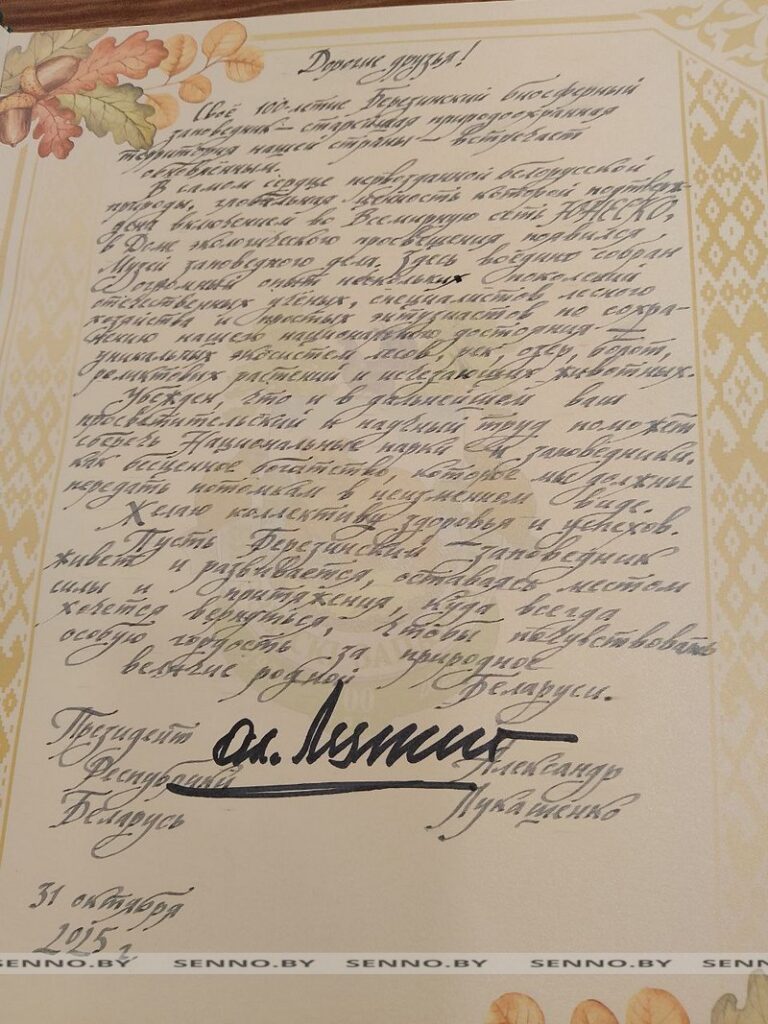 Дорогие друзья!
Своё 100-летие Березинский биосферный
заповедник – старейшая природоохранная
территория нашей страны – встречает
обновлённым.
В самом сердце первозданной белорусской
природы, глобальная ценность которой подтверж-
дена включением во Всемирную сеть ЮНЕСКО,
в Доме экологического просвещения появился
Музей заповедного дела. Здесь воедино собран
огромный опыт нескольких поколений
отечественных учёных, специалистов лесного
хозяйства и простых энтузиастов по сохра-
нению нашего национального достояния –
уникальных экосистем лесов, рек, озер, болот,
реликтовых растений и исчезающих животных.
Убежден, что и в дальнейшем ваш
просветительский и научный труд поможет
сберечь Национальные парки и заповедники,
как бесценное богатство, которое мы должны
передать потомкам в неизменном виде.
Желаю коллективу здоровья и успехов.
Пусть Березинский заповедник
живет и развивается, оставаясь местом
силы и притяжения, куда всегда
хочется вернуться, чтобы почувствовать
особую гордость за природное
величие родной Беларуси.
Президент
Республики
Беларусь
Александр
Лукашенко
31 октября
2025 г.
SENNO.BY SENNO.BY SENNO.BY SENNO.BY SENNO.BY